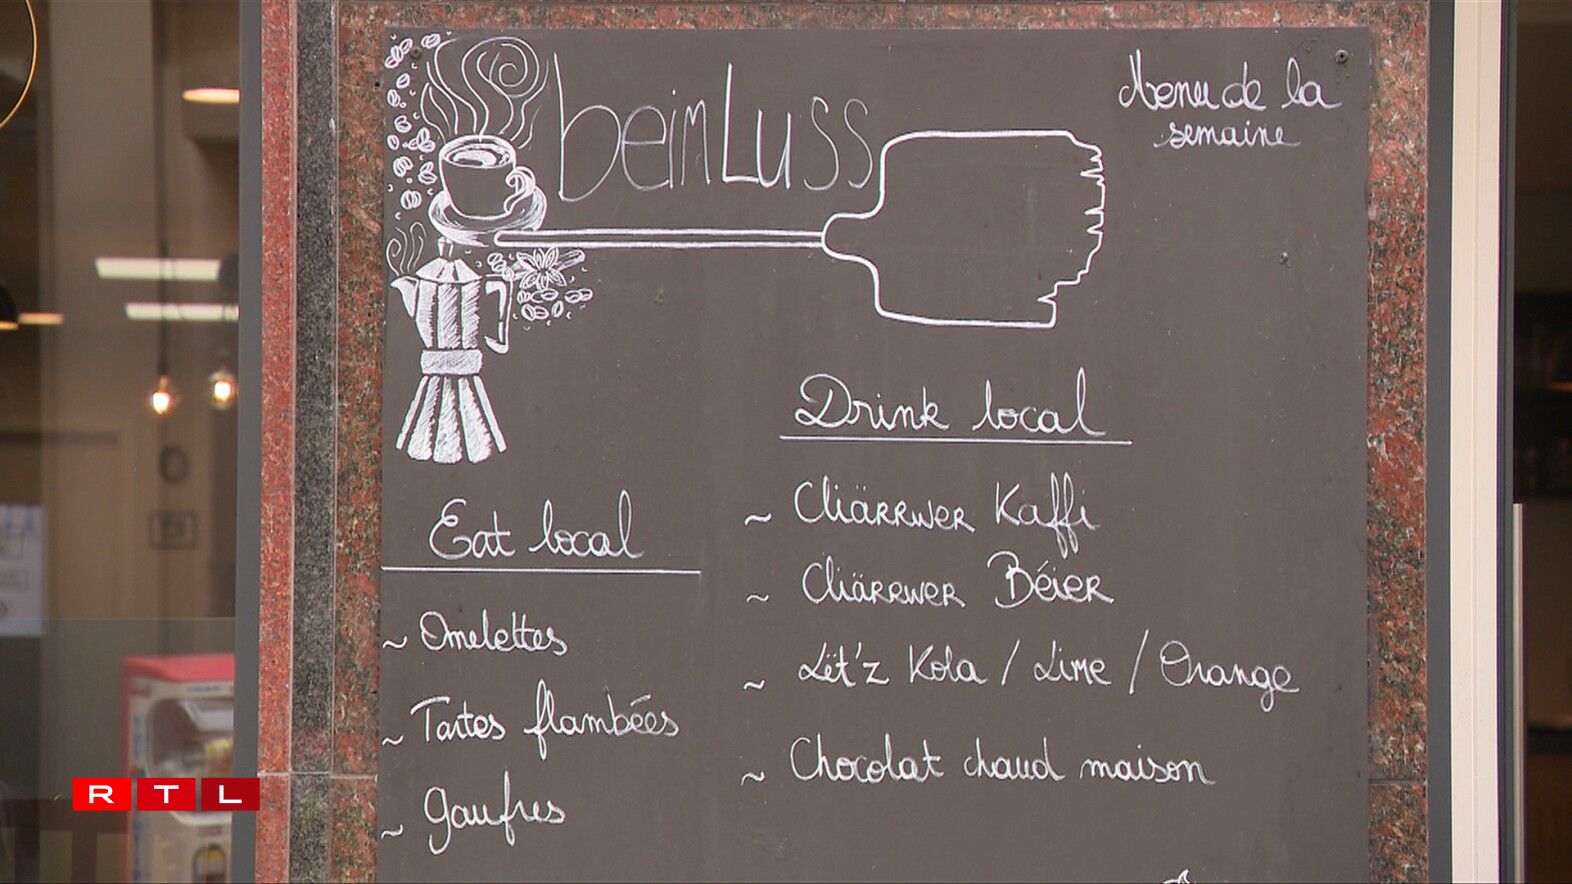 beim Luss
Menu de la
semaine
Drink local
~ Cliärrwer Kaffi
~ Cliärrwer Béier
~ Lët'z Kola / Lime / Orange
~ Chocolat chaud maison
Eat local
~ Omelettes
~ Tartes flambées
~ Gaufres
RTL